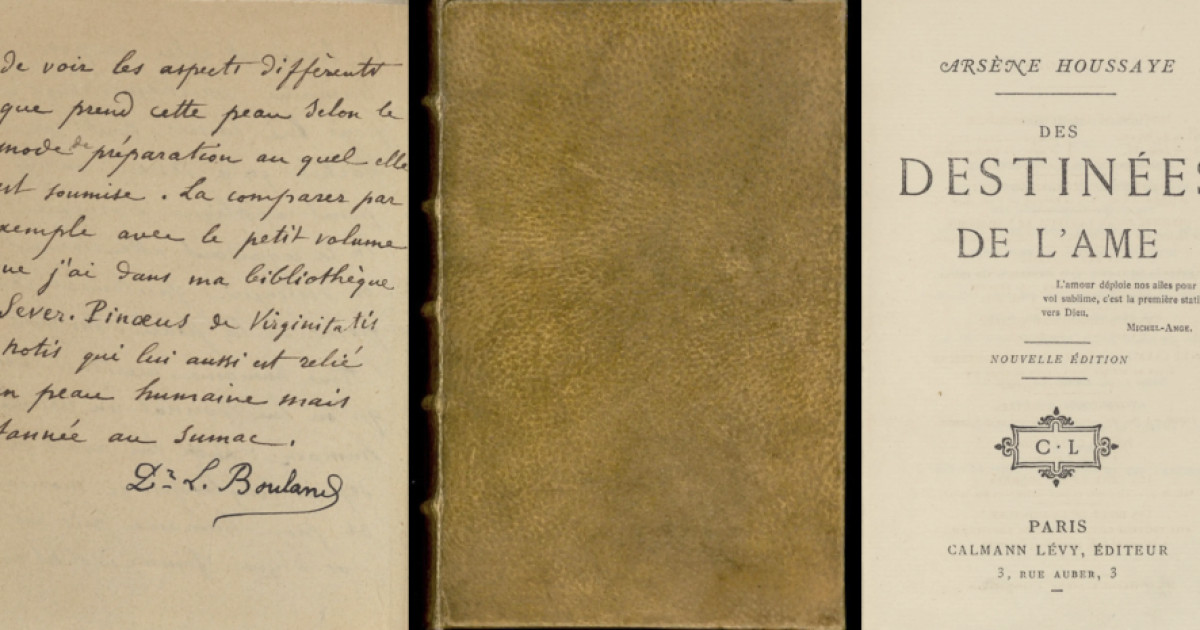 de voir les aspects différents
que prend cette peau selon le
mode de préparation au quel elle
est soumise. La comparer par
exemple avec le petit volume
que j'ai dans ma bibliothèque
Sever. Pinaeus de Virginitatis
notis qui lui aussi est relié
en peau humaine mais
tannée au sumac.
Dr L. Bouland
ARSÈNE HOUSSAYE
DES
DESTINÉES
DE L'AME
L'amour déploie nos ailes pour
vol sublime, c'est la première stati
vers Dieu.
MICHEL-ANGE.
NOUVELLE ÉDITION
C·L
PARIS
CALMANN LÉVY, ÉDITEUR
3, RUE AUBER, 3